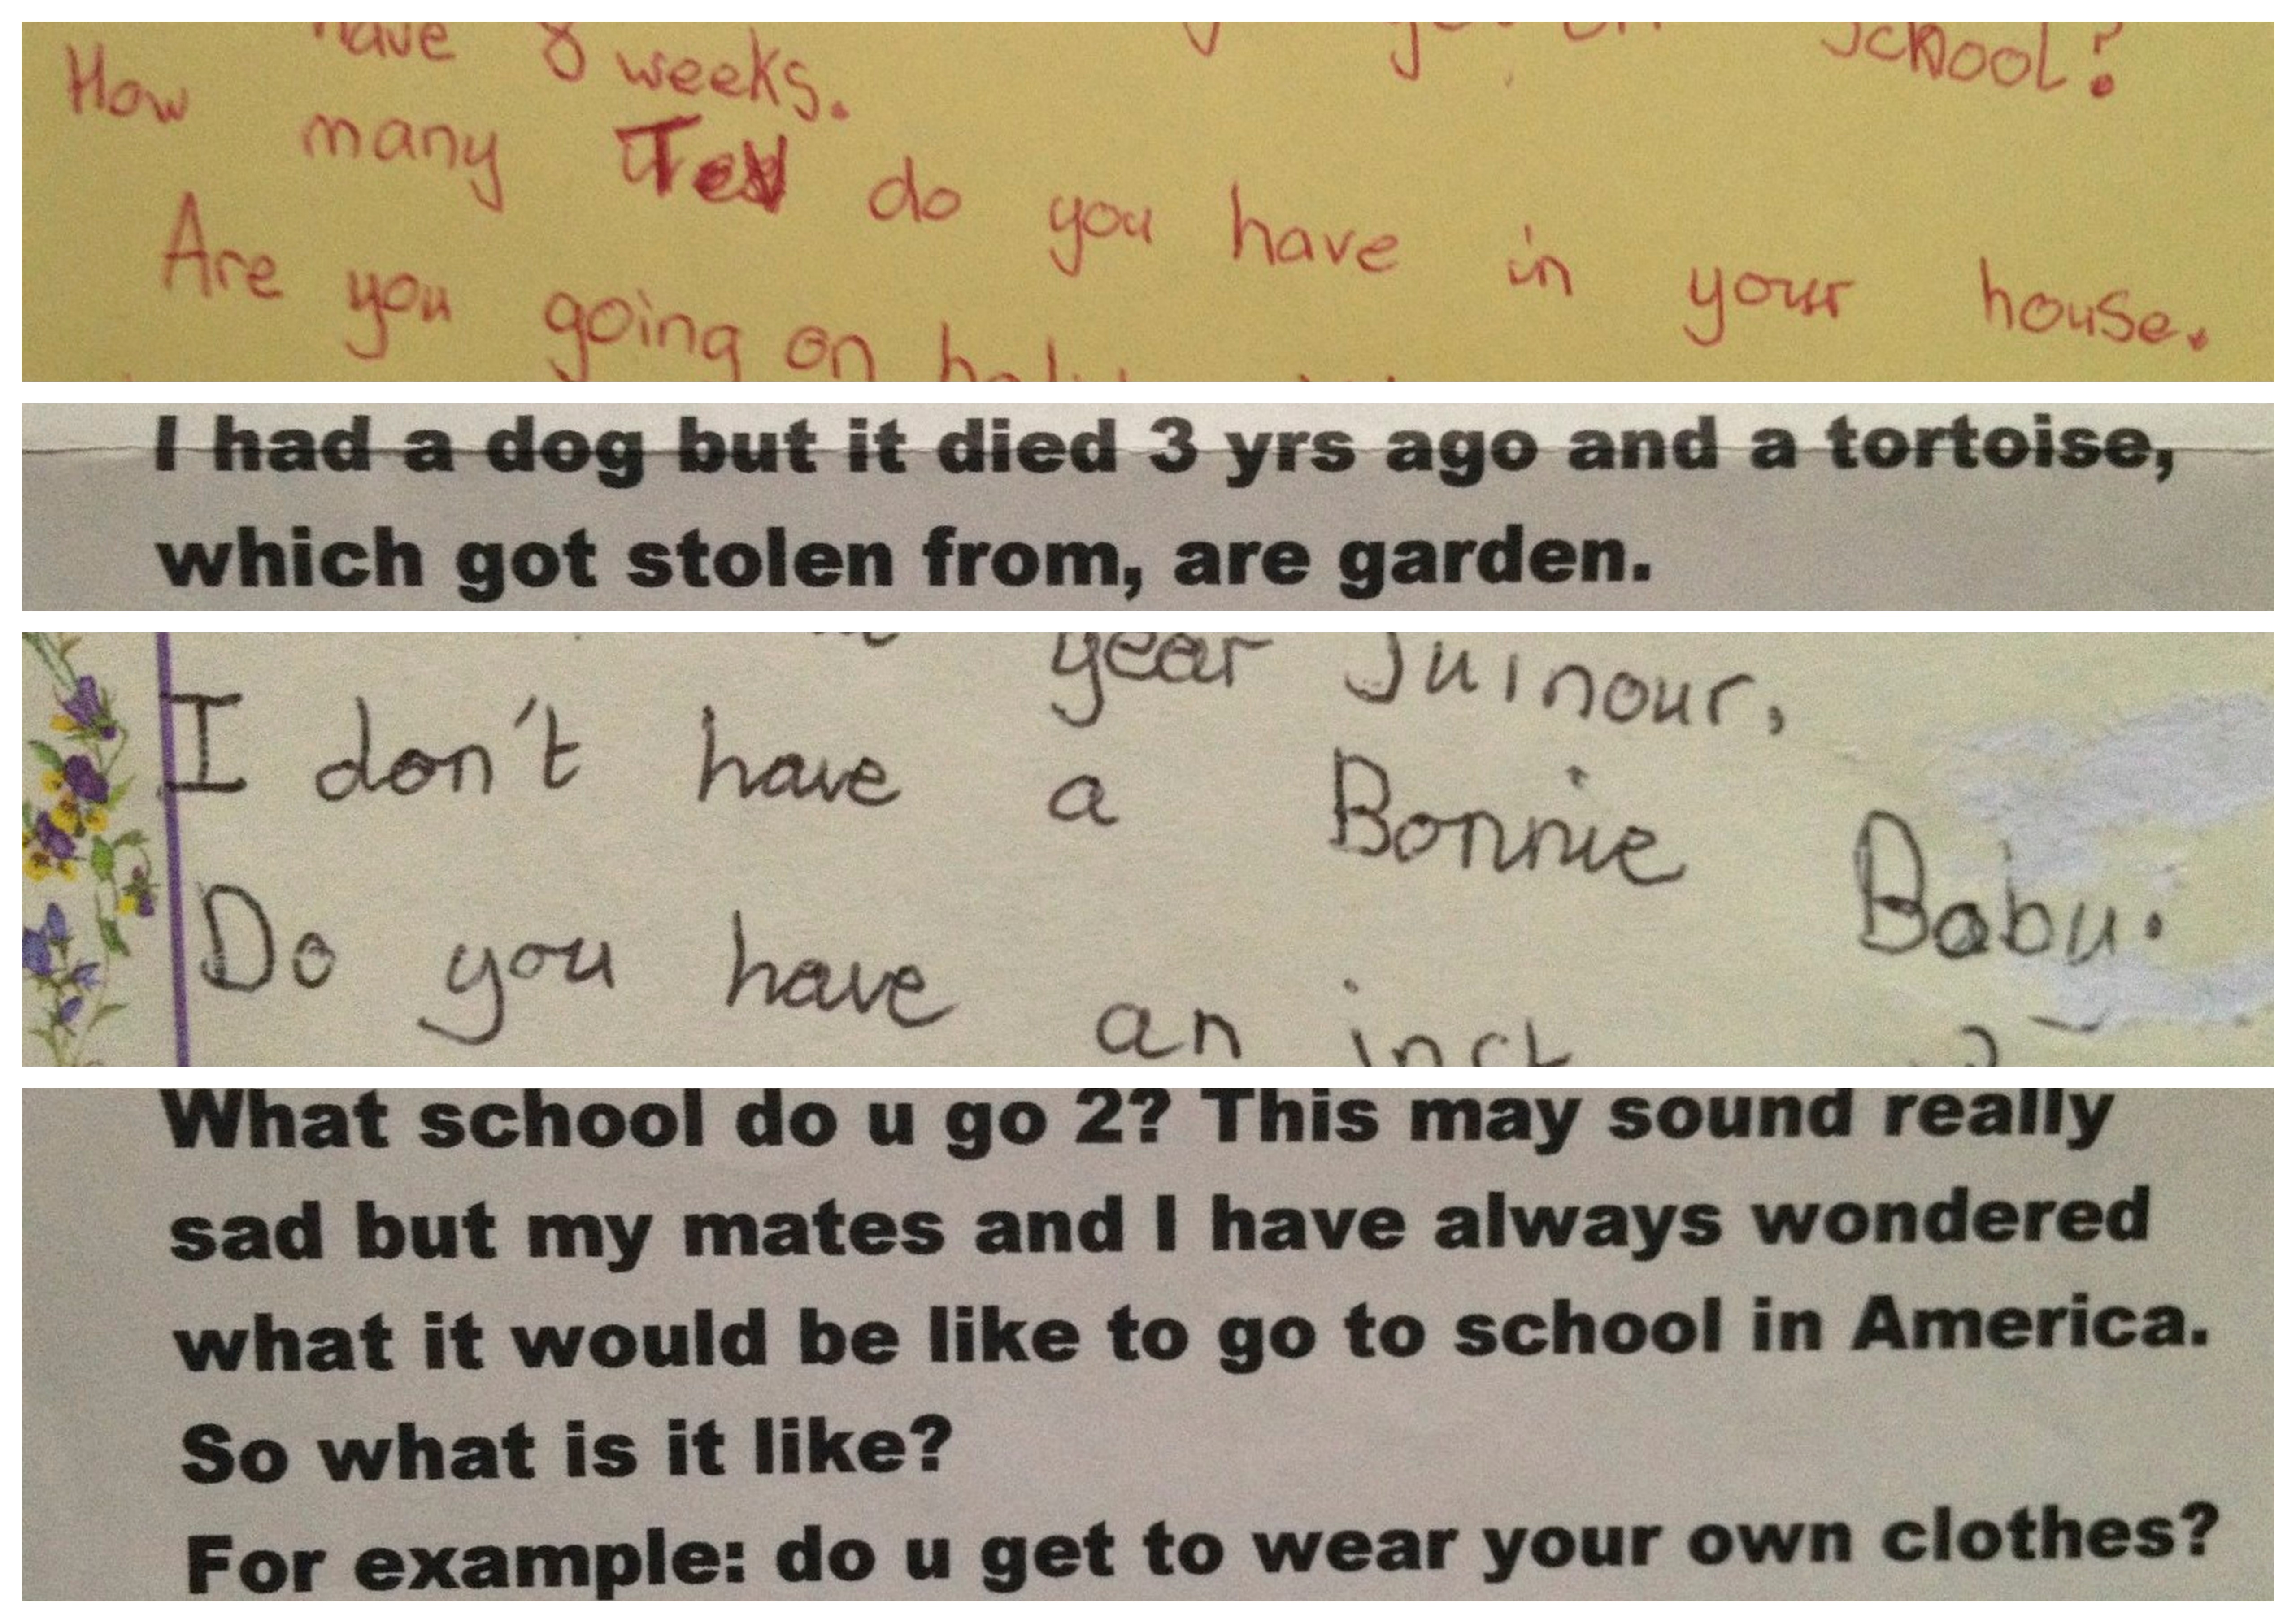 have 8 weeks. school?
How many do you have in your house.
Are you going on
I had a dog but it died 3 yrs ago and a tortoise,
which got stolen from, are garden.
year Juinour,
I don't have a Bonnie Baby.
Do you have an
What school do u go 2? This may sound really
sad but my mates and I have always wondered
what it would be like to go to school in America.
So what is it like?
For example: do u get to wear your own clothes?